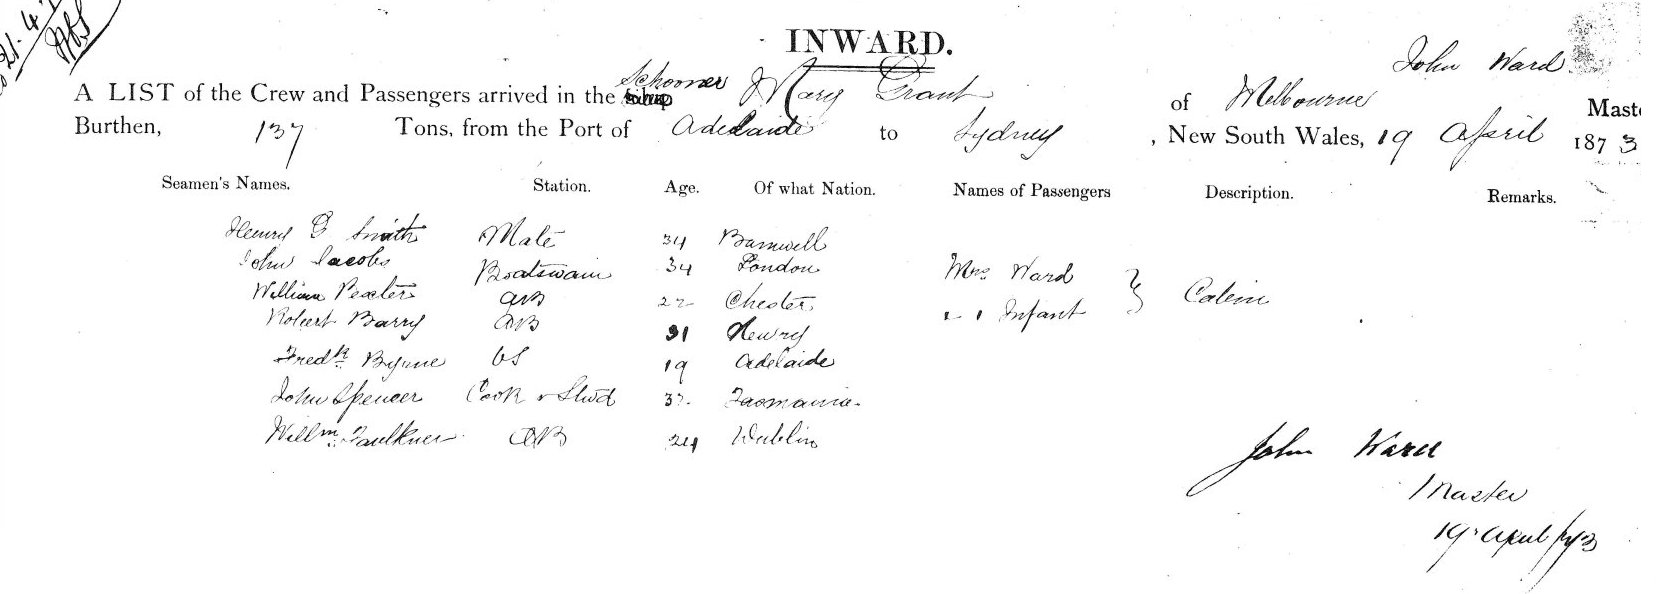 21.4.7
INWARD.
John Ward
A LIST of the Crew and Passengers arrived in the Schooner Mary Grant of Melbourne Maste
Burthen, 137 Tons, from the Port of Adelaide to Sydney, New South Wales, 19 April 1873
Seamen's Names. Station. Age. Of what Nation. Names of Passengers Description. Remarks.
Henry G Smith Mate 34 Barnwell
John Jacobs Boatswain 34 London Mrs Ward
William Pexter AB 22 Chester " " Infant } Cabin
Robert Barry AB 31 Newry
Fredk. Byrne OS 19 Adelaide
John Spencer Cook & Stwd 37. Tasmania
Willm. Faulkner AB 24 Dublin
John Ward
Master
19 April /73